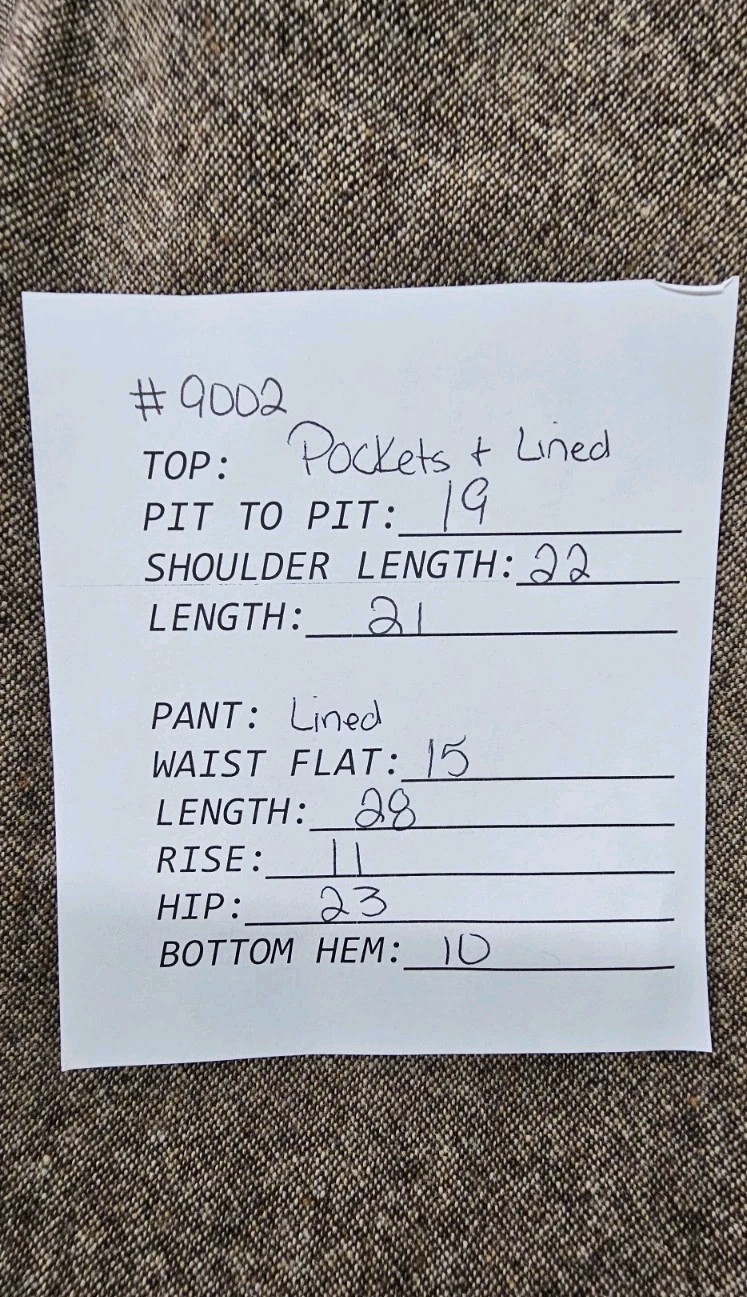 #9002
TOP: Pockets + Lined
PIT TO PIT: 19
SHOULDER LENGTH: 22
LENGTH: 21
PANT: Lined
WAIST FLAT: 15
LENGTH: 28
RISE: 11
HIP: 23
BOTTOM HEM: 10